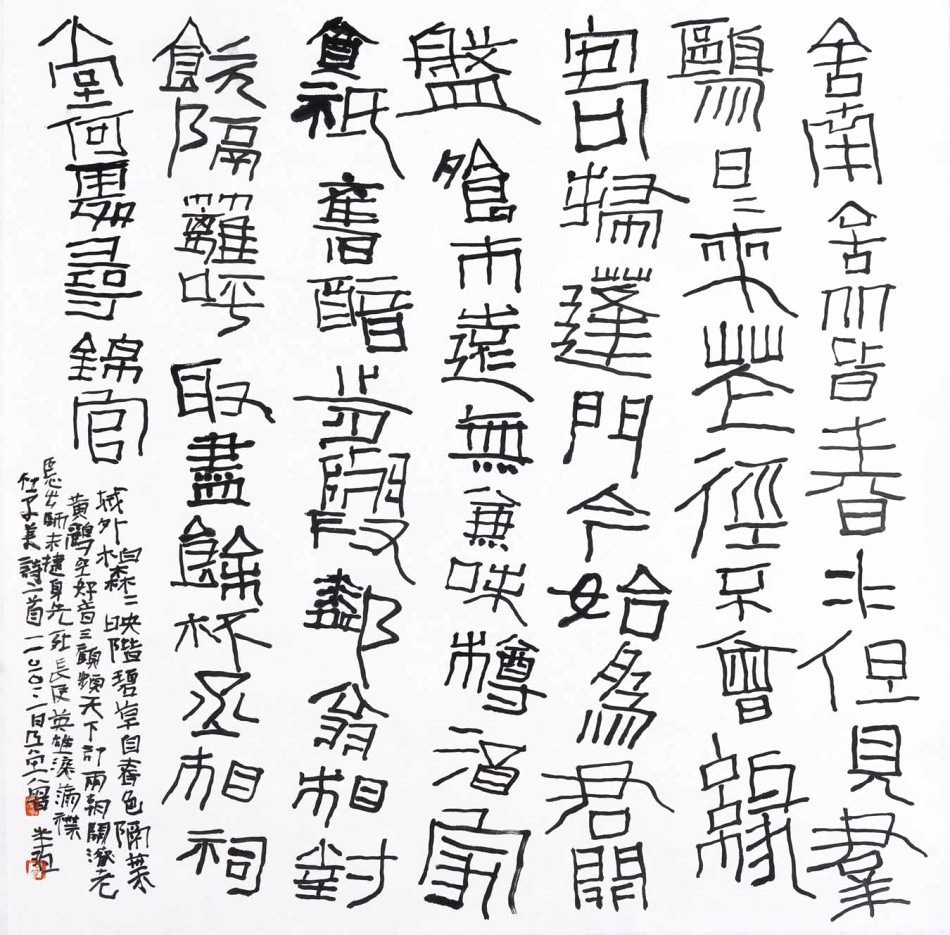 舍南舍北皆春水但見羣
鷗日二來花徑不曾緣
客掃蓬門今始為君開
盤飧市遠無兼味樽酒家
貧祇舊醅肯與鄰翁相對
飲隔籬呼取盡餘杯丞相祠
堂何處尋錦官
城外柏森二映階碧草自春色隔葉
黃鸝空好音三顧頻天下計兩朝開濟老
出師未捷身先死長使英雄淚滿襟
杜子美詩二首